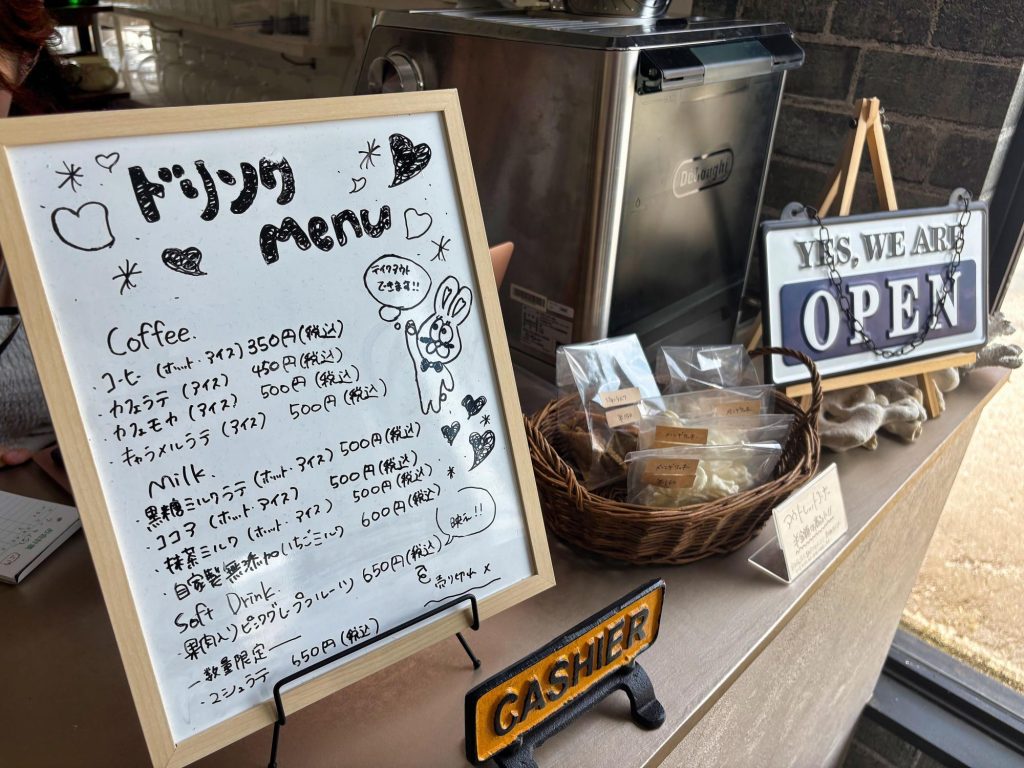 ドリンク
Menu
テイクアウト
できます!!
Coffee.
・コーヒー (ホット・アイス) 350円(税込)
・カフェラテ (アイス) 450円(税込)
・カフェモカ (アイス) 500円(税込)
・キャラメルラテ (アイス) 500円(税込)
Milk.
・黒糖ミルクラテ (ホット・アイス) 500円(税込)
・ココア (ホット・アイス) 500円(税込)
・抹茶ミルク (ホット・アイス) 500円(税込)
・自家製無添加いちごミルク 600円(税込)
映え!!
Soft Drink.
・果肉入りピンクグレープフルーツ 650円(税込)
売り切れ×
―数量限定―
650円(税込)
CASHIER
DeLonghi
YES, WE ARE
OPEN
メレンゲクッキー
アウトレットコーナー